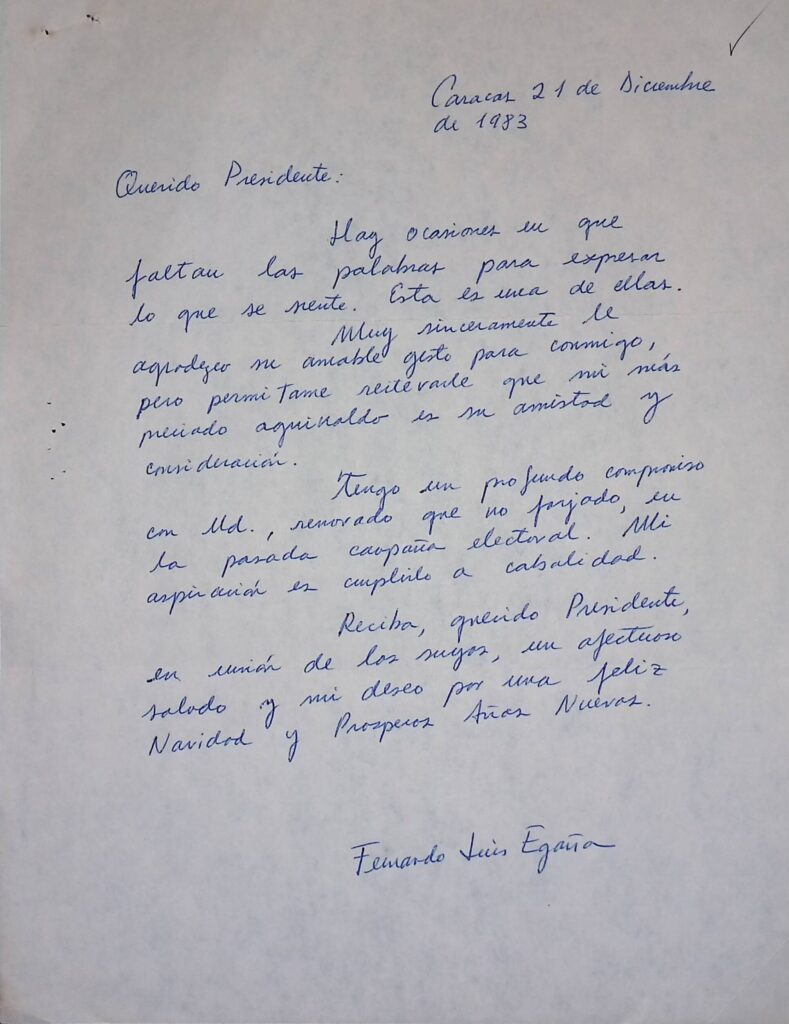 Caracas 21 de Diciembre
de 1983
Querido Presidente:
Hay ocasiones en que
faltan las palabras para expresar
lo que se siente. Esta es una de ellas.
Muy sinceramente le
agradezco su amable gesto para conmigo,
pero permitame reiterarle que mi más
preciado aguinaldo es su amistad y
consideración.
Tengo un profundo compromiso
con Ud., renovado que no forjado, en
la pasada campaña electoral. Mi
aspiración es cumplirlo a cabalidad.
Reciba, querido Presidente,
en unión de los suyos, un afectuoso
saludo y mi deseo por una feliz
Navidad y Prosperos Años Nuevos.
Fernando Luis Egaña